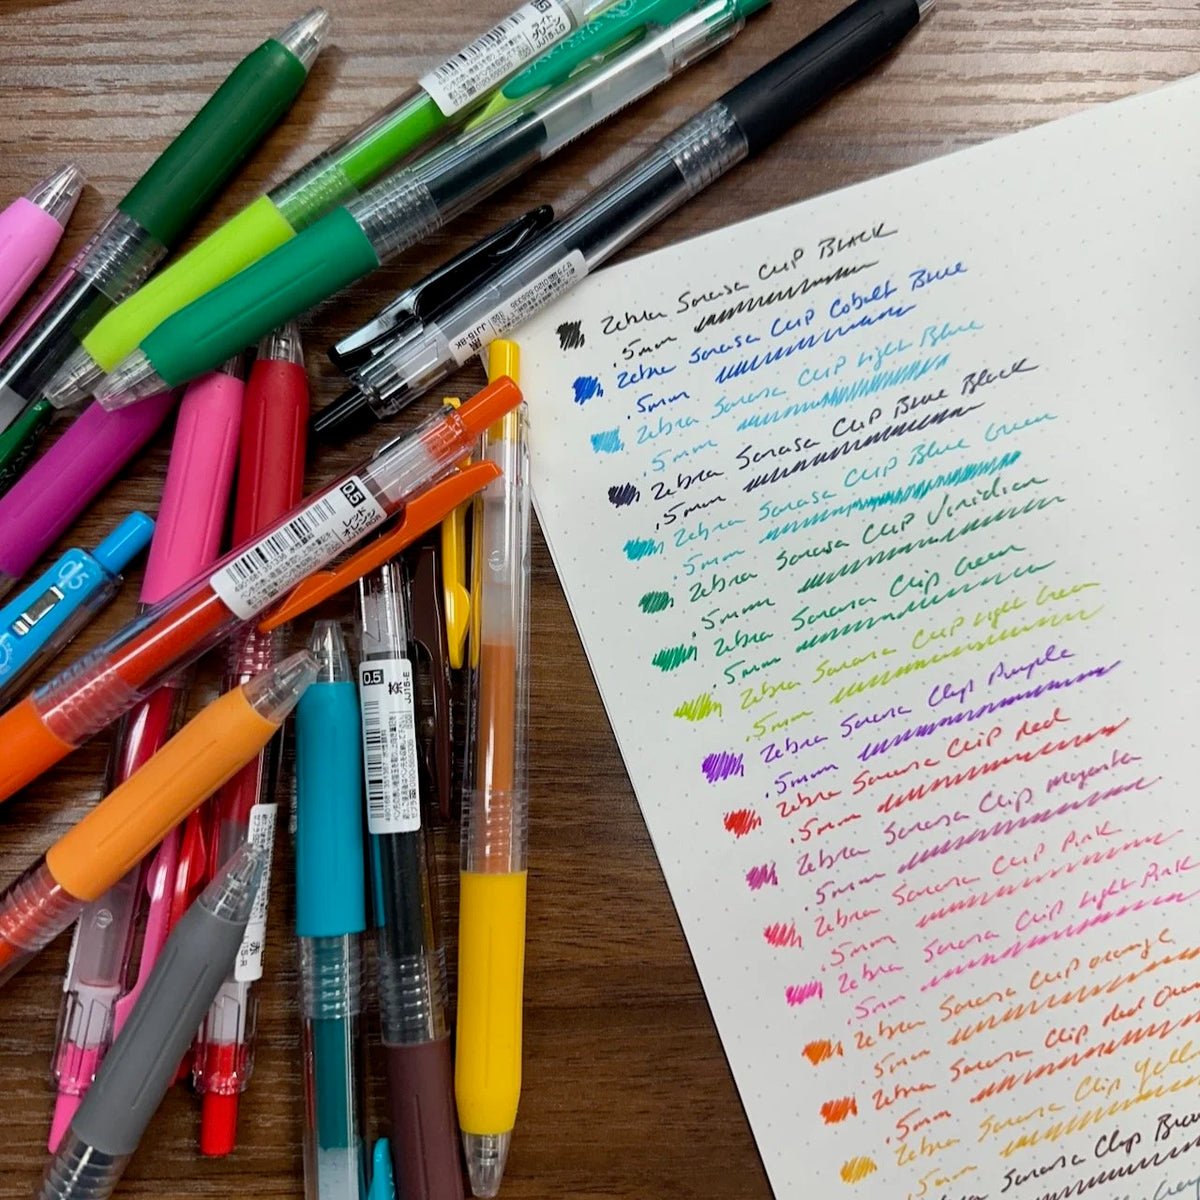 Zebra Sarasa Clip BLACK
.5mm
Zebra Sarasa Clip Cobalt Blue
.5mm
Zebra Sarasa Clip Light Blue
.5mm
Zebra Sarasa Clip Blue Black
.5mm
Zebra Sarasa Clip Blue Green
.5mm
Zebra Sarasa Clip Viridian
.5mm
Zebra Sarasa Clip Green
.5mm
Zebra Sarasa Clip Light Green
.5mm
Zebra Sarasa Clip Purple
.5mm
Zebra Sarasa Clip Red
.5mm
Zebra Sarasa Clip Magenta
.5mm
Zebra Sarasa Clip Pink
.5mm
Zebra Sarasa Clip Light Pink
.5mm
Zebra Sarasa Clip orange
.5mm
Zebra Sarasa Clip Red
.5mm
Zebra Sarasa Clip
.5mm
Sarasa Clip
0.5
ライト
グリーン
JJ15-LG
JJ15-BK
0.5
レッド
オレンジ
JJ15-ROR
0.5
茶
JJ15-E
0.5
赤
JJ15-R